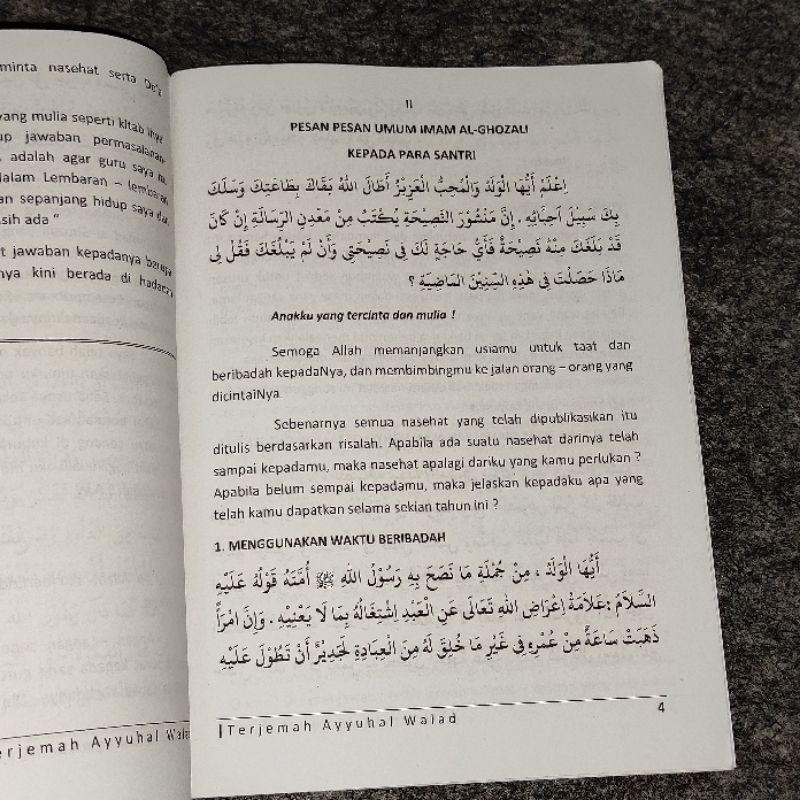 minta nasehat serta
yang mulia seperti kitab
up jawaban permasalanan
adalah agar guru saya
dalam Lembaran – lembaran
an sepanjang hidup saya
sih ada “
t jawaban kepadanya berupa
nya kini berada di hadapan
erjemah Ayyuhal Walad
II
PESAN PESAN UMUM IMAM AL-GHOZALI
KEPADA PARA SANTRI
اِعْلَمْ أَيُّهَا الْوَلَدُ وَالْمُحِبُّ الْعَزِيْزُ أَطَالَ اللهُ بَقَاكَ بِطَاعَتِكَ وَسَلَكَ
بِكَ سَبِيْلَ اَحِبَّائِهِ . إِنَّ مَنْشُوْرَ النَّصِيْحَةِ يُكْتَبُ مِنْ مَعْدِنِ الرِّسَالَةِ إِنْ كَانَ
قَدْ بَلَغَكَ مِنْهُ نَصِيْحَةٌ فَأَيُّ حَاجَةٍ لَكَ فِى نَصِيْحَتِى وَأَنْ لَمْ يَبْلُغْكَ فَقُلْ لِى
مَاذَا حَصَلْتَ فِى هٰذِهِ السِّنِيْنَ الْمَاضِيَةِ ؟
Anakku yang tercinta dan mulia !
Semoga Allah memanjangkan usiamu untuk taat dan
beribadah kepadaNya, dan membimbingmu ke jalan orang – orang yang
dicintaiNya
Sebenarnya semua nasehat yang telah dipublikasikan itu
ditulis berdasarkan risalah. Apabila ada suatu nasehat darinya telah
sampai kepadamu, maka nasehat apalagi dariku yang kamu perlukan ?
Apabila belum sempai kepadamu, maka jelaskan kepadaku apa yang
telah kamu dapatkan selama sekian tahun ini ?
1. MENGGUNAKAN WAKTU BERIBADAH
أَيُّهَا الْوَلَدْ ، مِنْ جُمْلَةِ مَا نَصَحَ بِهِ رَسُوْلُ اللهِ ﷺ أُمَّتَهُ قَوْلُهُ عَلَيْهِ
السَّلاَمُ :عَلاَمَةُ اِعْرَاضِ اللهِ تَعَالَى عَنِ الْعَبْدِ اِشْتِغَالُهُ بِمَا لَا يَعْنِيْهِ . وَإِنَّ امْرَأً
ذَهَبَتْ سَاعَةٌ مِنْ عُمْرِهِ فِى غَيْرِ مَا خُلِقَ لَهُ مِنَ الْعِبَادَةِ لَجَدِيْرٌ أَنْ تَطُوْلَ عَلَيْهِ
|Terjemah Ayyuhal Walad
4